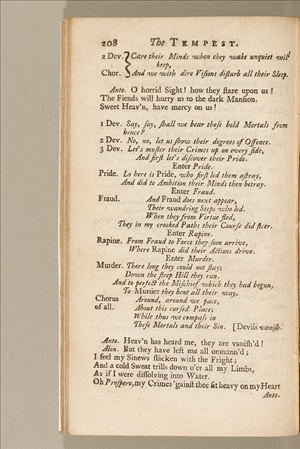 208 The TEMPEST.
2 Dev. } Care their Minds when they wake unquiet will
keep,
Chor. } And we with dire Visions disturb all their Sleep.
Anto. O horrid Sight! how they stare upon us!
The Fiends will hurry us to the dark Mansion.
Sweet Heav'n, have mercy on us!
1 Dev. Say, say, shall we bear these bold Mortals from
hence?
2 Dev. No, no, let us show their degrees of Offence.
3 Dev. Let's muster their Crimes up on every side,
And first let's discover their Pride.
Enter Pride.
Pride. Lo here is Pride, who first led them astray,
And did to Ambition their Minds then betray.
Enter Fraud.
Fraud. And Fraud does next appear,
Their wandring Steps who led.
When they from Virtue fled,
They in my crooked Paths their Course did steer.
Enter Rapine.
Rapine. From Fraud to Force they soon arrive,
Where Rapine did their Actions drive.
Enter Murder.
Murder. There long they could not stay;
Down the steep Hill they run.
And to perfect the Mischief which they had begun,
To Murder they bent all their way.
Chorus Around, around we pace,
of all. About this cursed Place;
While thus we compass in
These Mortals and their Sin. [Devils vanish.
Anto. Heav'n has heard me, they are vanish'd!
Alon. But they have left me all unmann'd;
I feel my Sinews slacken with the Fright;
And a cold Sweat trills down o'er all my Limbs,
As if I were dissolving into Water.
Oh Prospero, my Crimes 'gainst thee sit heavy on my Heart
Anto.